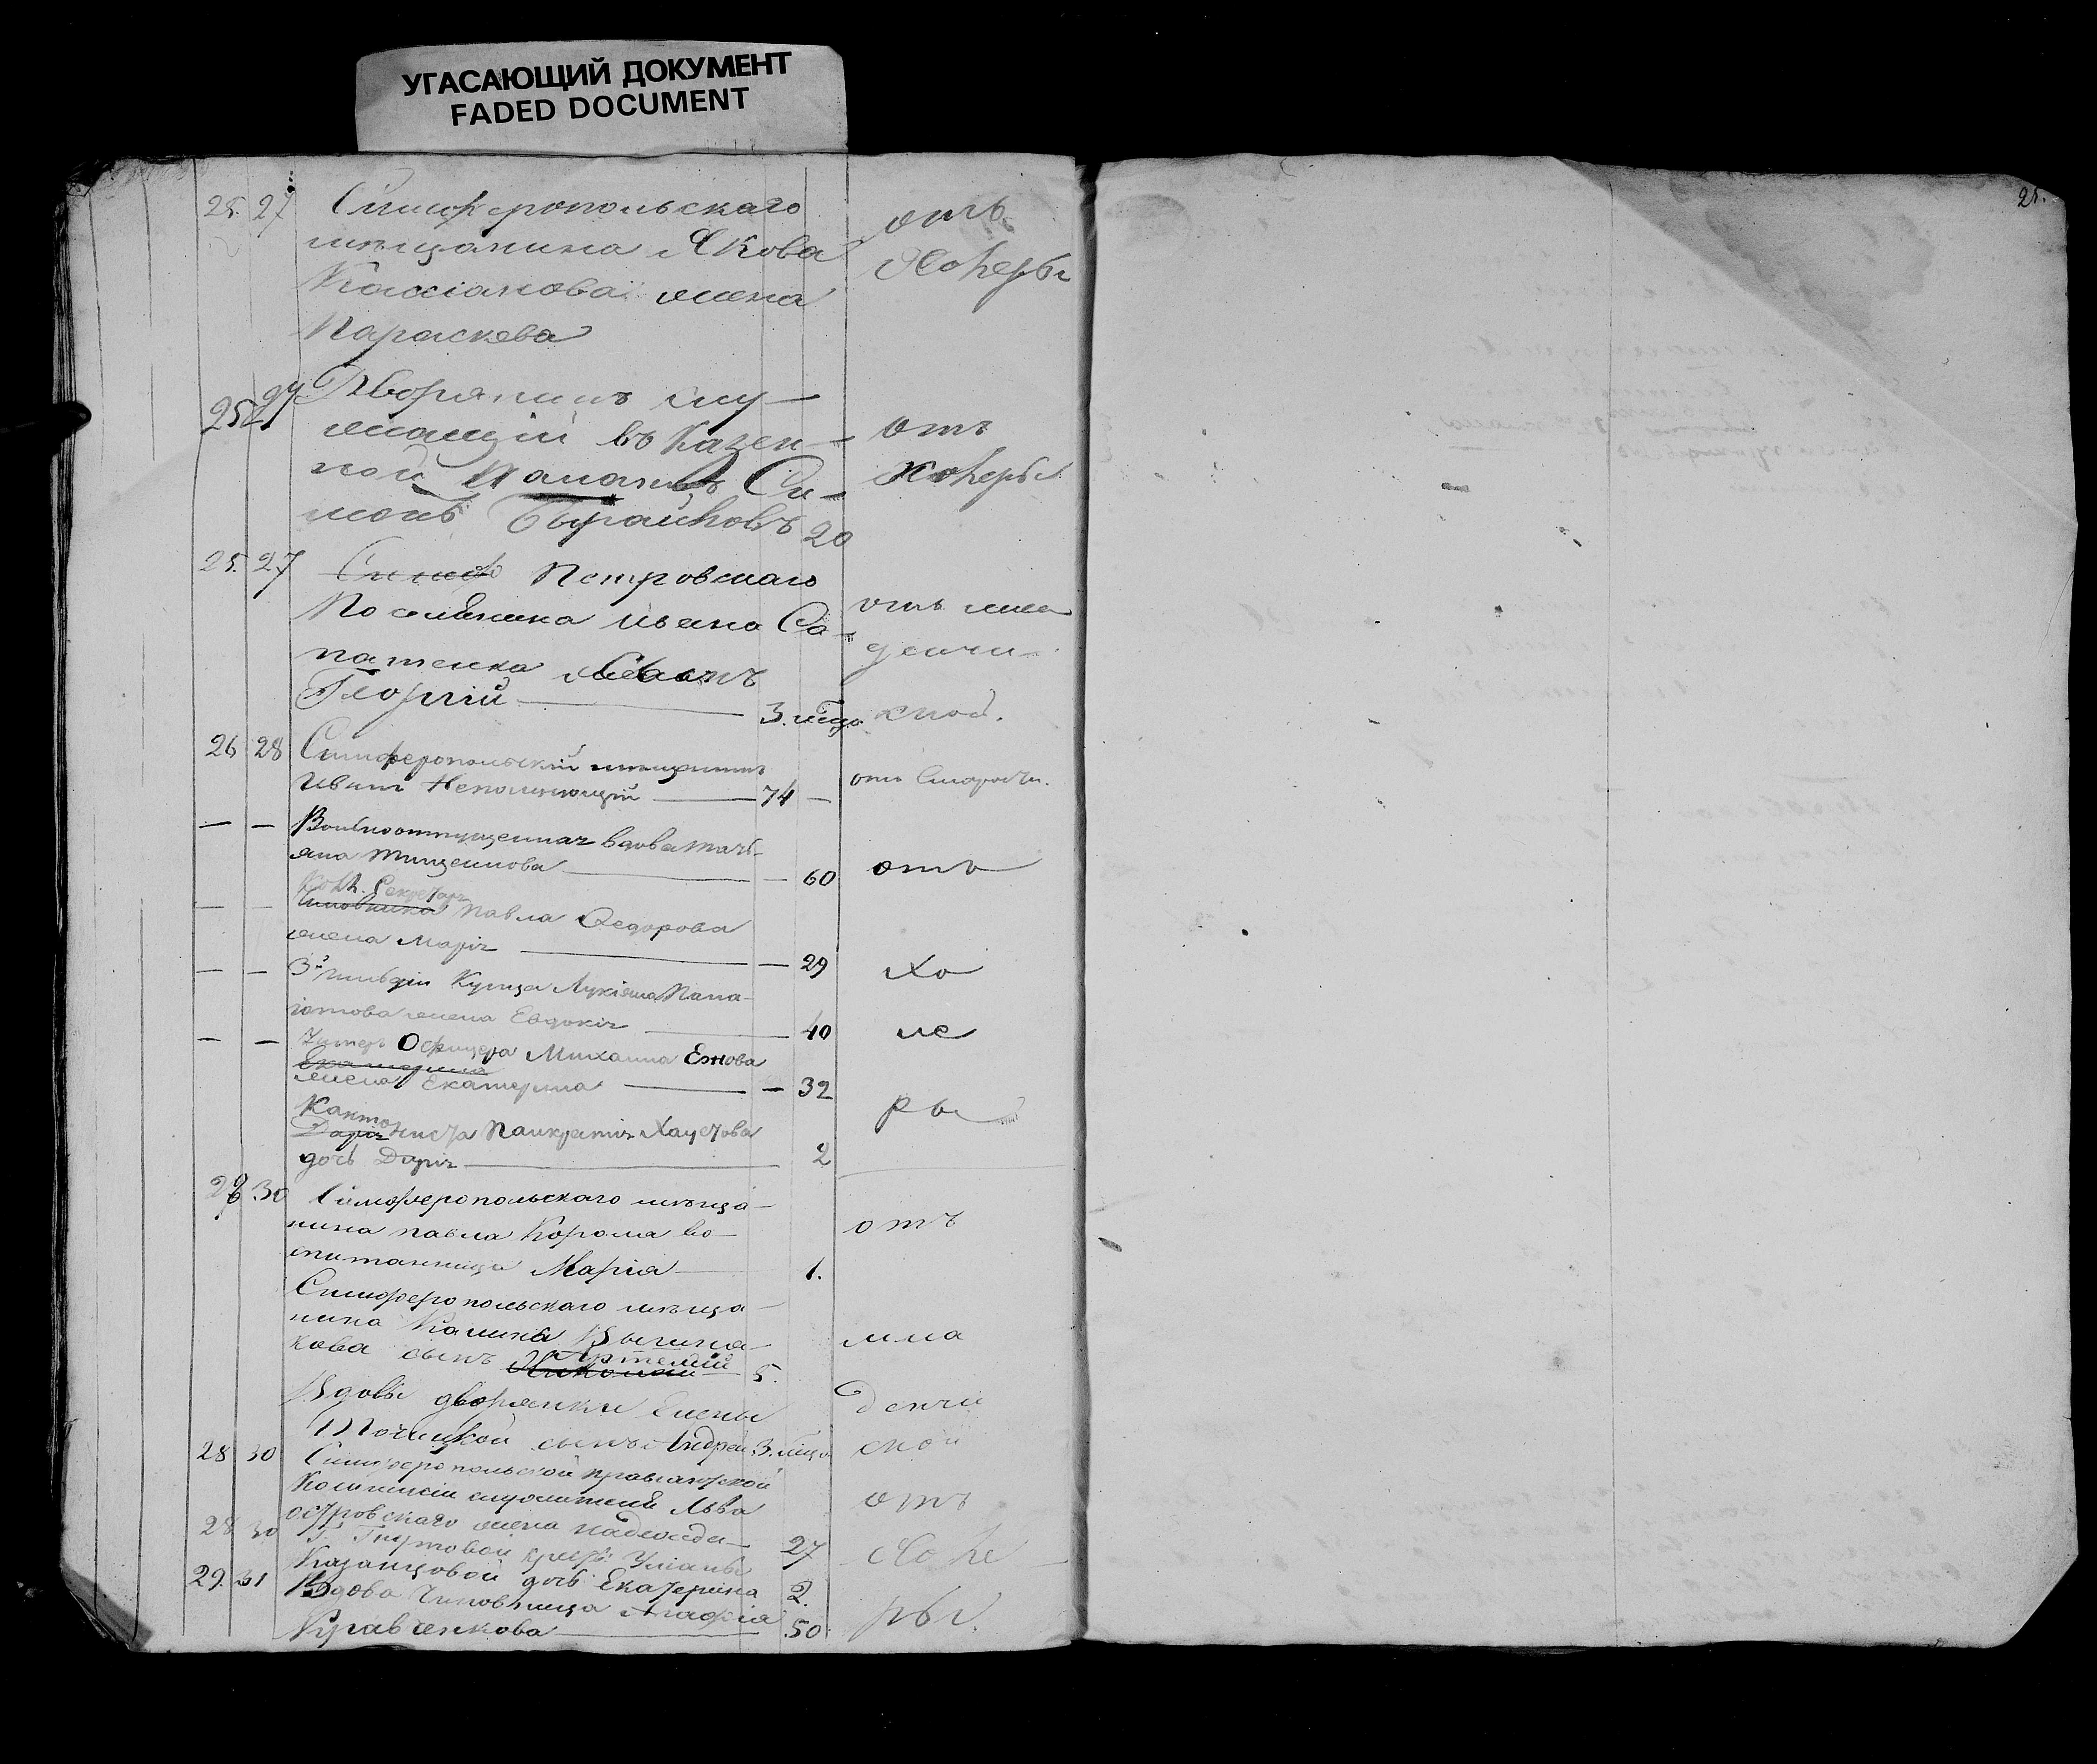 УГАСАЮЩИЙ ДОКУМЕНТ
FADED DOCUMENT
25.
25. 27 Симферопольскаго
мещанина Якова
Кассіанова жена
Параскева
отъ
Холеры
25 27 Дворянинъ слу-
жащій въ Казен-
ной Палатѣ Си-
20
отъ
Холеры
25. 27 Петровскаго
Поселянина Ивана Са-
патенка сынъ
Георгій 3. мѣца
отъ мла
денчи
ской.
26 28 Симферопольскій мѣщанинъ
Иванъ Непомнющій 74 —
отъ Старости.
— — Вольноотпущенная вдова Тать-
яна Тищенкова — 60
отъ
— — Колл. Секретаря
Чиновника Павла Федорова
жена Марія — 29
— — 3й гильдіи Купца Лукіяна Пана-
іотова жена Евдокія 40
хо
— — Унтеръ Офицера Михаила Ежова
Екатерина
жена Екатерина — 32
ле
Канто
Дарія ниста Панкратія Хаустова
дочь Дарія 2
ры
28 30 Симферопольскаго мѣща-
нина павла Короля во-
питанница Марія 1.
отъ
Симферопольскаго мѣща-
нина
кова сынъ Артемій
Николай 5.
мла
Вдовы дворянки Елены
сынъ Андрей 3. мѣца
денчи
ской
28 30 Симферопольской провіантской
Комиссіи служителя Льва
Островскаго жена надежда 27
отъ
28 30
Казанцовой дочь Екатерина 2.
Холе
29. 31 Вдова Чиновница Агафія
Кравченкова 50.
ры.